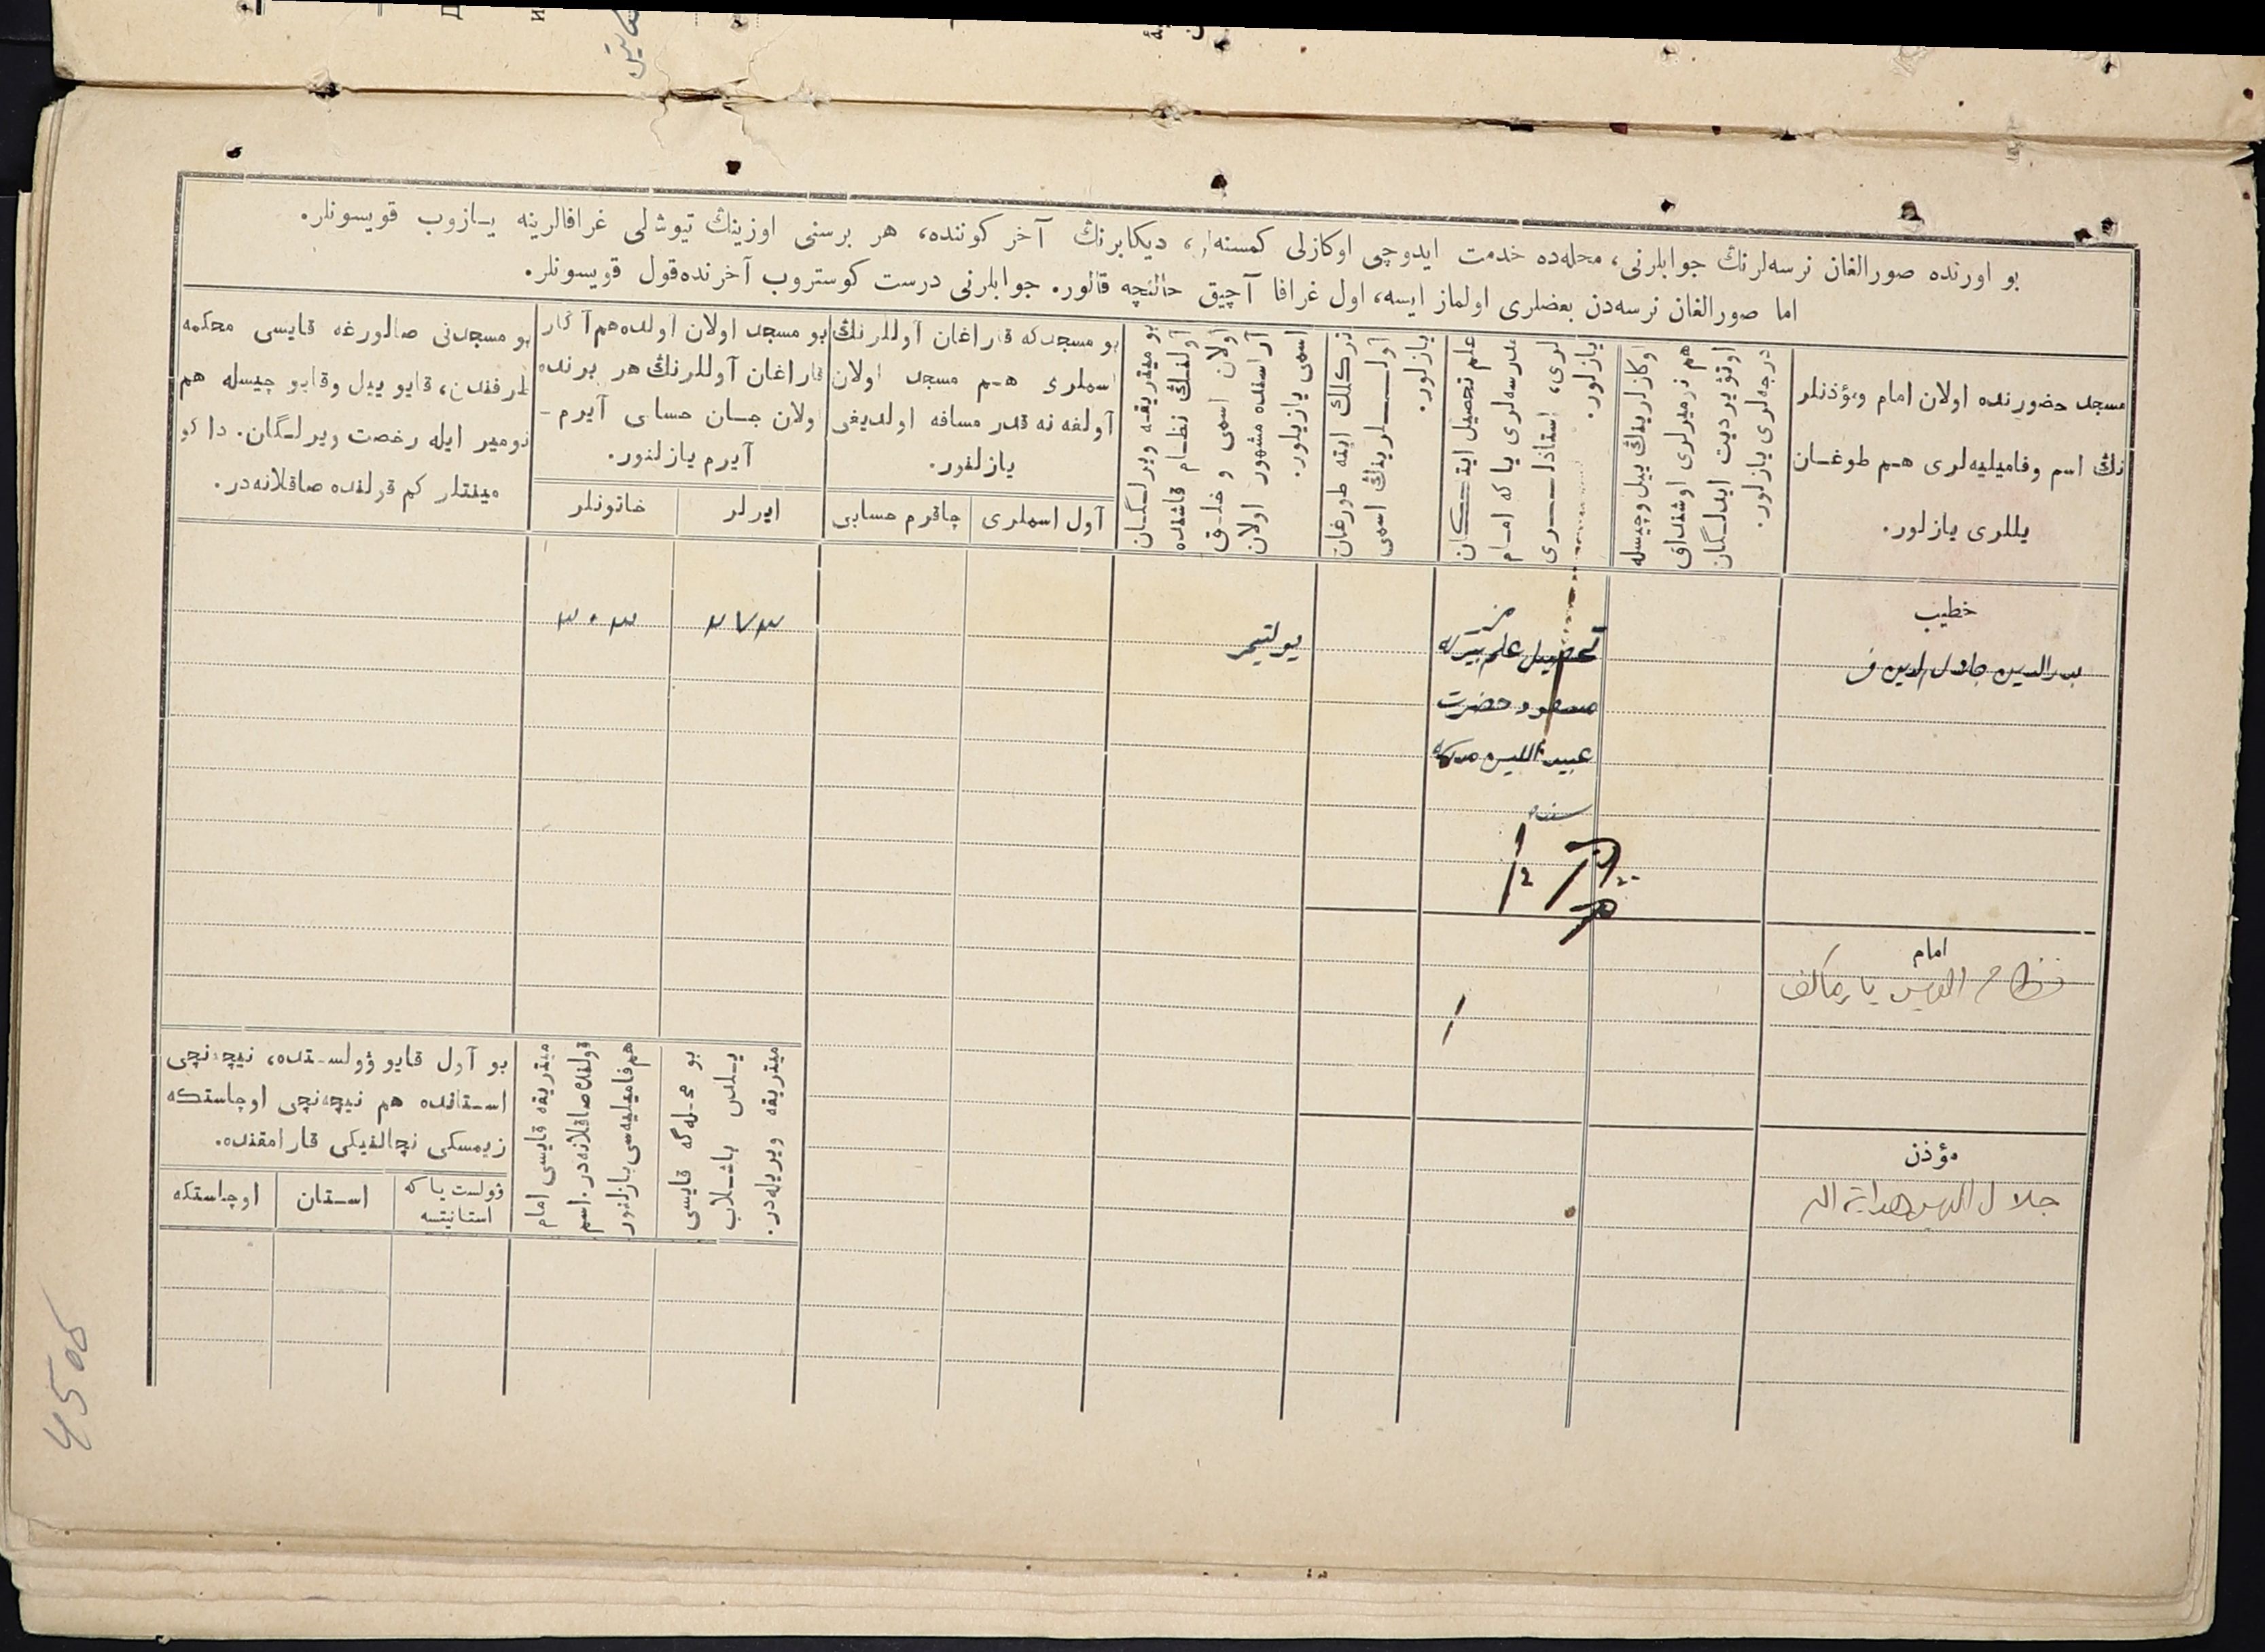 بو اورنده صورالغان نرسه‌لرنڭ جوابلرنی، محله‌ده خدمت ایدوچی اوکازلی کمسنه‌لر، دیکابرنڭ آخر کوننده، هر برسنی اوزینڭ تیوشلی غرافالرینه یازوب قویسونلر.
اما صورالغان نرسه‌دن بعضلری اولماز ایسه، اول غرافا آچیق حالنچه قالور. جوابلرنی درست کوستروب آخرنده قول قویسونلر.
مسجد حضورنده اولان امام ومؤذنلر
نڭ اسم وفامیلیه‌لری هم طوغان
یللری یازلور.
اوکازلرینڭ ییل وچیسله
هم نومیرلری اوشنداق
اوتویردیت ایدلگان
درجه‌لری یازلور.
علم تحصیل ایتکان
مدرسه‌لری یا که امام
لری، استاذلری
یازلور.
تزکلک ایته طورغان
آوللرینڭ اسمی
یازلور.
بو میتریقه ویرلگان
آولنڭ نظام قاشنده
اولان اسمی و خلق
آراسنده مشهور اولان
اسمی یازیلور.
بو مسجدکه قاراغان آوللرنڭ
اسملری هم مسجد اولان
آولغه نه قدر مسافه اولدیغی
یازلنور.
آول اسملری
چاقرم حسابی
بو مسجد اولان اولده هم آکار
قاراغان آوللرنڭ هر برنده
اولان جان حسابی آیرم-
آیرم یازلنور.
ایرلر
خاتونلر
بو مسجدنی صالورغه قایسی محکمه
طرفندن، قایو ییل وقایو چیسله هم
نومیر ایله رخصت ویرلگان. داکو
مینتلر کم قولنده صاقلانه‌در.
خطیب
بدرالدین جلال الدین ف
تحصیل علم بیرله
مسعود حضرت
یولتیمر
٢٧٣
٣٠٣
سنه
امام
نظام الدین
مؤذن
جلال الدین هدایة الله
میتریقه ویریله‌در.
یلدن باشلاب
بو محله‌گه قایسی
میتریقه قایسی امام
قولنده صاقلانه‌در. اسم
هم فامیلیه‌سی یازلنور
بو آول قایو وولستده، نیچه‌نچی
استانده هم نیچه‌نچی اوچاستکه
زیمسکی نچالنیکی قارامقنده.
وولست یا که
استانیتسه
استان
اوچاستکه